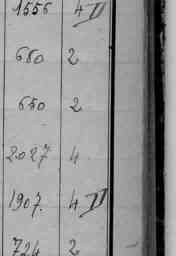 1556 4 D
680 2
650 2
2027 4
1907. 4 D
724 2